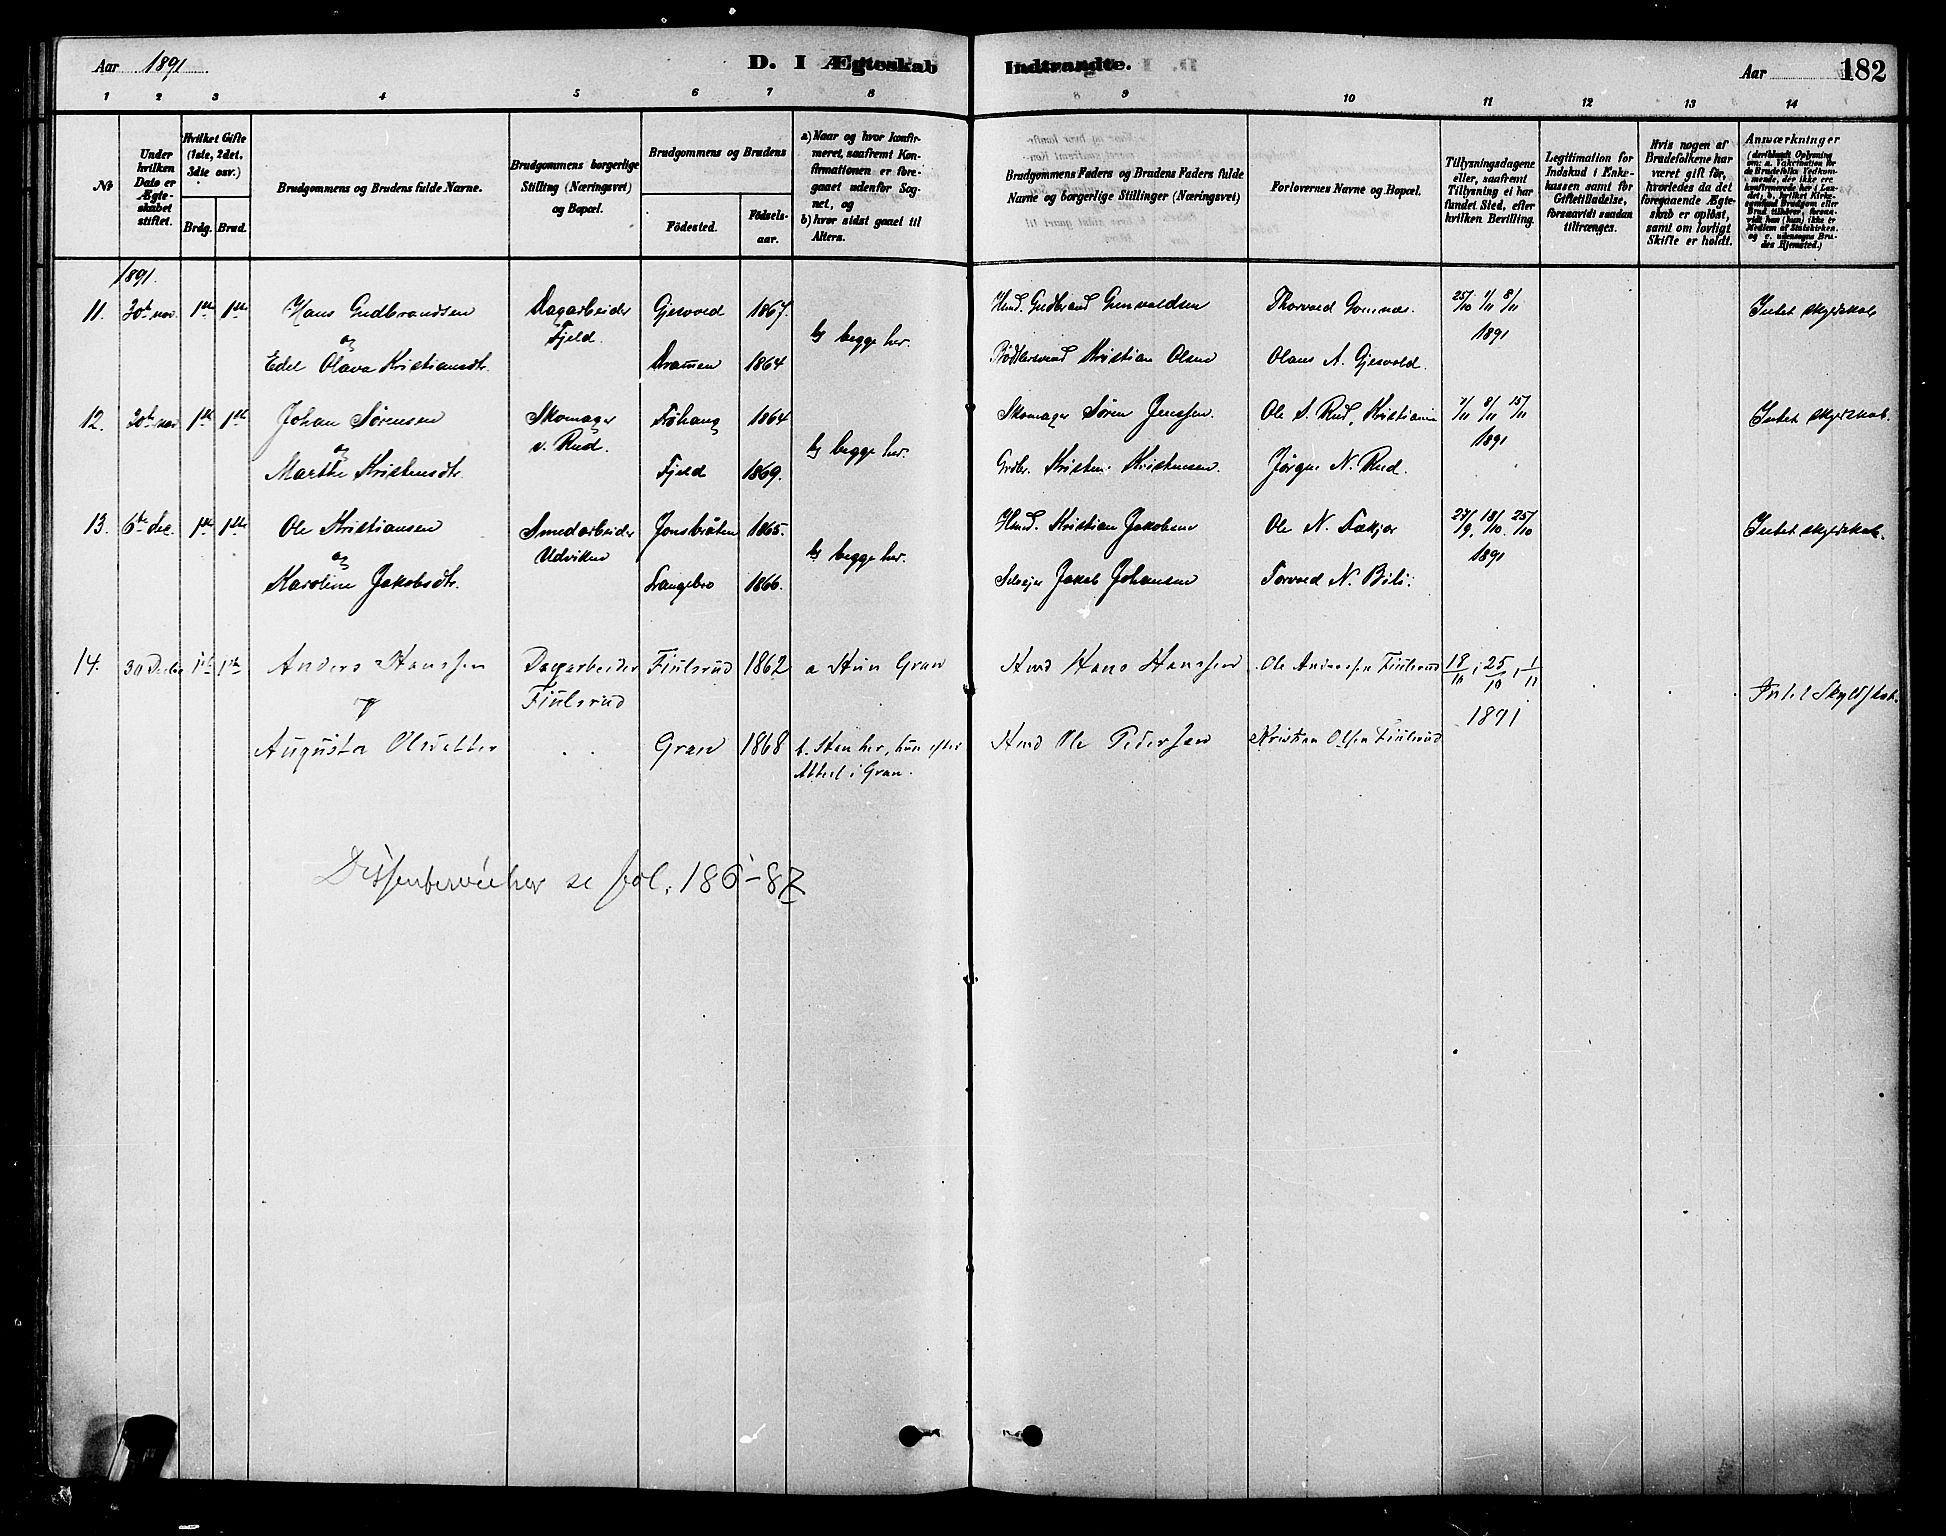 Aar 1891
D. I Ægteskab Indtraadte.
Aar 182
1 2 3 4 5 6 7 8 9 10 11 12 13 14
No
Under hvilken Dato er Ægteskabet stiftet.
Hvilket Gifte (1ste, 2det, 3die osv.)
Brdg. Brud.
Brudgommens og Brudens fulde Navne.
Brudgommens borgerlige Stilling (Næringsvei) og Bopæl.
Brudgommens og Brudens
Födested.
Födselsaar.
a) Naar og hvor konfirmeret, saafremt Konfirmationen er foregaaet udenfor Sognet, og
b) hvor sidst gaaet til Alters.
Brudgommens Faders og Brudens Faders fulde Navne og borgerlige Stillinger (Næringsvei)
Forlovernes Navne og Bopæl.
Tillysningsdagene eller, saafremt Tillysning ei har fundet Sted, efter hvilken Bevilling.
Legitimation for Indskud i Enkekassen samt for Giftetilladelse, forsaavidt saadan tiltrænges.
Hvis nogen af Brudefolkene har været gift før, hvorledes da det foregaaende Ægteskab er opløst, samt om lovligt Skifte er holdt.
Anmærkninger
1891.
11. 20de nov. 1ste 1ste Hans Gudbrandsen Dagarbeider Gjesvold 1867. Hmd. Gudbrand Gunvaldsen Thorvald Gomnæs. 25/10 1/11 8/11 Intet skyldskab
og Fjeld. b) begge her. 1891
Edel Olava Kristiansdtr. Drammen 1864 Bødkersvend Kristian Olsen Olaus A. Gjesvold.
12. 20de nov. 1ste 1ste Johan Sørensen Skomager Frøhaug 1864 Skomager Søren Jenssen. Ole S. Rud, Kristiania 1/11 8/11 15/11 Intet skyldskab.
og v. Rud. b) begge her. 1891
Marthe Kristensdtr. Fjeld 1869. Gbr. Kristen Kristensen. Jørgen N. Rud.
13. 6te dec. 1ste 1ste Ole Kristiansen Smedarbeider Jonsbråten 1865. Hmd. Kristian Jakobsen Ole N. 27/9, 18/10. 25/10 Intet skyldskab.
og Udviken b) begge her. 1891
Karoline Jakobsdtr. Langebro 1866. Selveier Jakob Johansen Torvald N. Bili.
14. 30 Decbr 1ste 1ste Anders Hanssen Dagarbeider Fiulsrud 1862 a Hun Gran Hmd Hans Hanssen Ole Anderssen Fiulsrud 18/10, 25/10, 1/11
og Fiulsrud 1891 Intet Skyldskab.
Augusta Olsdatter Gran 1868 b. Han her, hun efter Attest i Gran. Hmd Ole Pederssen Kristian Olsen Fiulsrud
Dissentervielser se fol. 186-87